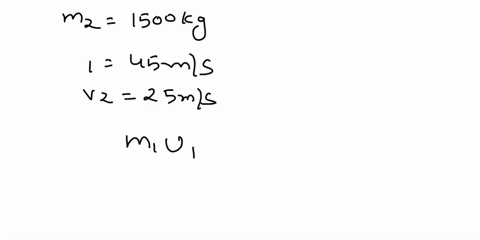 m₂ = 1500kg
1 = 45m/s
v₂ = 25m/s
m₁ u₁